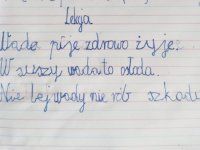 Lekcja
Wodę pije zdrowo żyje.
W suszy woda to osłoda.
Nie lej wody nie rób szkody